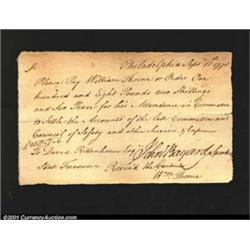 Philadelphia Sept 11th
Sir
Please Pay William Thorne or Order One
hundred and Eight Pounds two Shillings
and Six Pence for his Attendance in Committee
to Settle the Accounts of the late Committee and
Council of Safety and other Services & Expences
To David Rittenhouse Esqr John Bayard
State Treasurer Received the Contents
Wm Thorne
©2001 CurrencyAuction.com